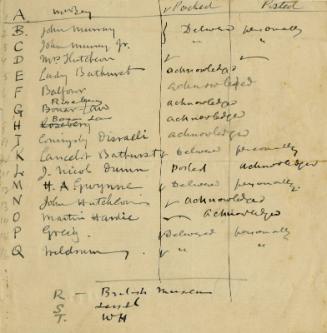 A McBey ✓ Packed Posted
B. John Murray Delivered personally
C John Murray Jr. " "
D Mrs Hutcheon
E Lady Bathurst acknowledged
F Balfour acknowledged
G Bonar Law acknowledged
H Rosebery acknowledged
J Coningsby Disraeli acknowledged
K Lancelot Bathurst ✓ Delivered personally
L J. Nicol Dunn Posted acknowledged
M H A Gwynne ✓ Delivered personally
N John Hutcheon ✓ acknowledged
O Martin Hardie ✓ acknowledged
P Greig. ✓ Delivered personally
Q ✓ " "
R — British Museum
S.
T. WH